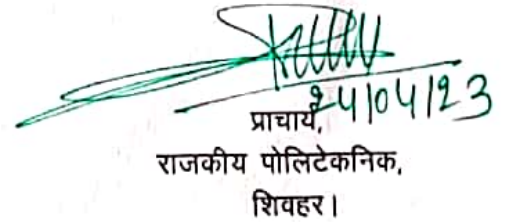 24/04/23
प्राचार्य,
राजकीय पोलिटेकनिक,
शिवहर।